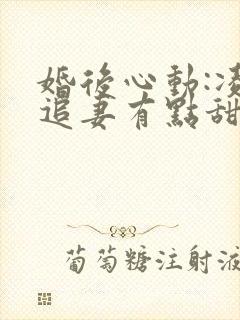 婚後心動:凌
追妻有點甜
葡萄糖注射液